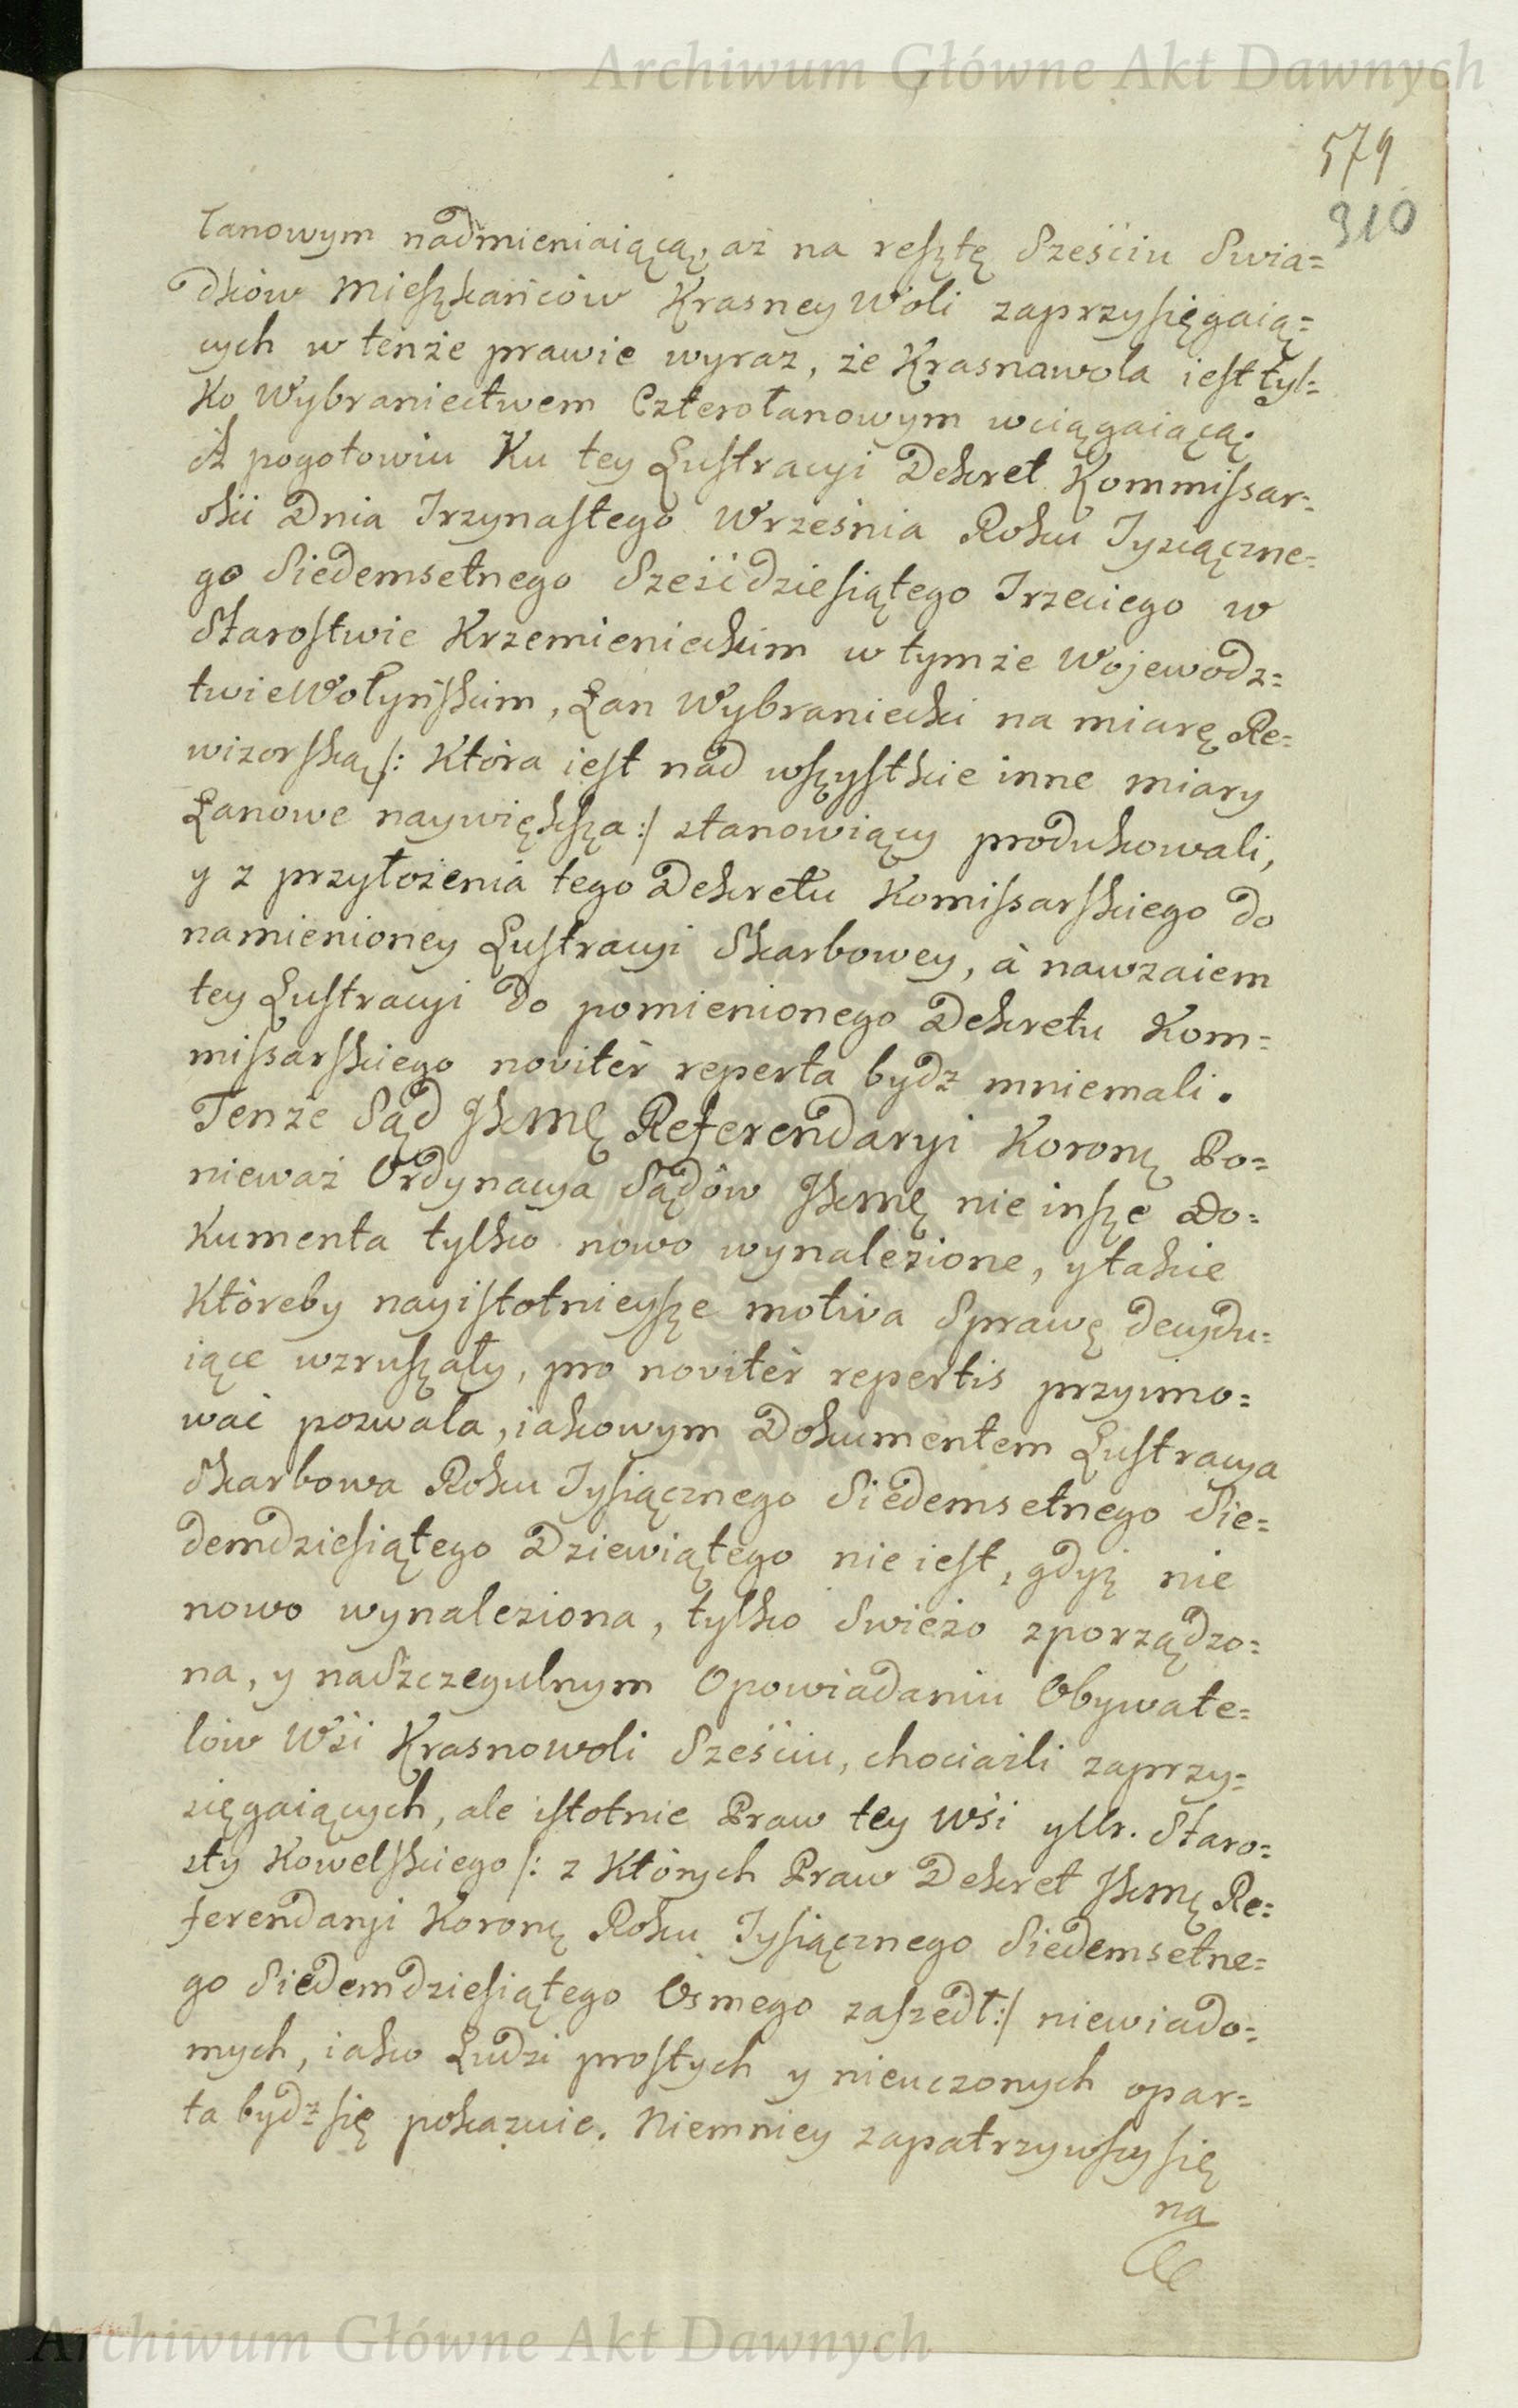 Archiwum Główne Akt Dawnych
579
310
łanowym nadmieniaiącą, aż na resztę Sześciu Swia=
dków Mieszkańców Krasney Woli zaprzysięgaią=
cych w tenże prawie wyraz, że Krasnawola iest tyl=
ko Wybraniectwem Czterołanowym wciągaiącą;
A pogotowiu Ku tey Lustracyi Dekret Kommissar=
ski Dnia Trzynastego Września Roku Tysiączne=
go Siedemsetnego Sześćdziesiątego Trzeciego w
Starostwie Krzemienieckim w tymże Wojewodz=
twie Wołyńskim, Łan Wybraniecki na miarę Re=
wizorską /: Która iest nad wszystkie inne miary
Łanowe naywiększa :/ stanowiący produkowali,
y z przyłożenia tego Dekretu Komissarskiego do
namienioney Lustracyi Skarbowey, à nawzaiem
tey Lustracyi do pomienionego Dekretu Kom=
missarskiego noviter reperta bydz mniemali.
Tenże Sąd JKMC Referendaryi Koronę Po=
nieważ Ordynacya Sądów JKMC nie insze Do=
kumenta tylko nowo wynalezione, y takie
Któreby nayistotnieysze motiva Sprawę decydu=
iące wzruszały, pro noviter repertis przyimo=
wać pozwala, iakowym Dokumentem Lustracya
Skarbowa Roku Tysiącznego Siedemsetnego Sie=
demdziesiątego Dziewiątego nie iest, gdyż nie
nowo wynaleziona, tylko Swieżo zporządzo=
na, y na Szczegulnym Opowiadaniu Obywate=
lów Wsi Krasnowoli Sześciu, chociażli zaprzy=
sięgaiących, ale istotnie Praw tey Wsi y Ur. Staro=
sty Kowelskiego /: z Których Praw Dekret JKMC Re=
ferendaryi Koronę Roku Tysiącznego Siedemsetne=
go Siedemdziesiątego Osmego zaszedł :/ niewiado=
mych, iako Ludzi prostych y nieuczonych opar=
ta bydz się pokazuie. Niemniey zapatrzywszy się
na
Archiwum Główne Akt Dawnych